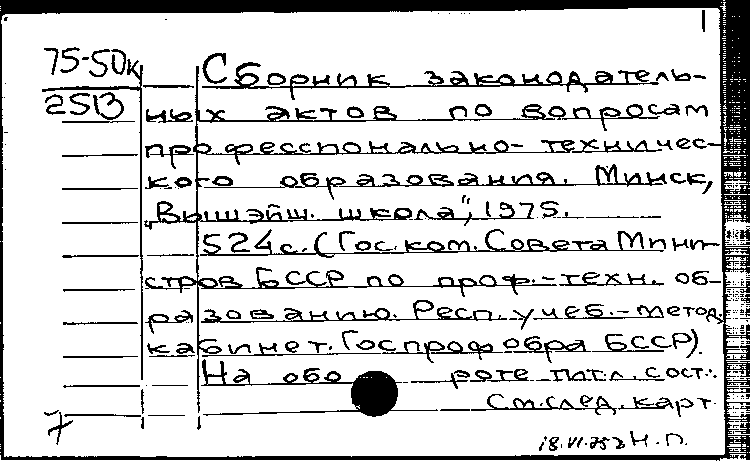 1
75-50к Сборник законодатель-
2513 ных актов по вопросам
профессионально-техничес-
кого образования. Минск,
„Вышэйш. школа“, 1975.
524с. (Гос.ком. Совета Мини-
стров БССР по проф.-техн. об-
разованию. Респ. учеб.-метод.
кабинет. Госпрофобра БССР).
На обороте титл. сост.:
См.след.карт
7 18.VI.75г Н.П.